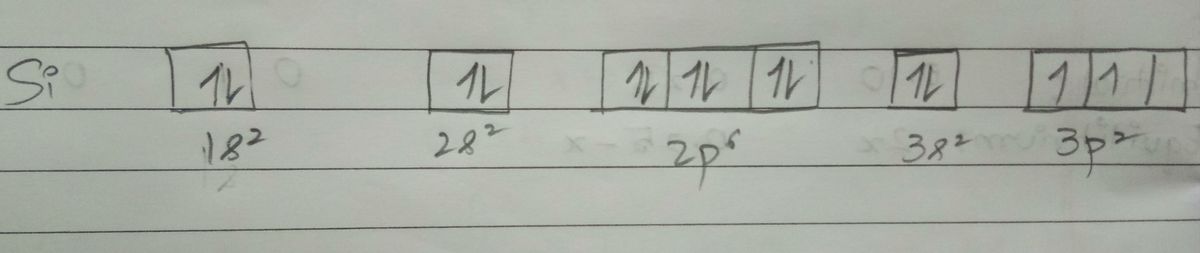 Si ⥮ ⥮ ⥮ ⥮ ⥮ ⥮ ↿ ↿
1s² 2s² 2p⁶ 3s² 3p²